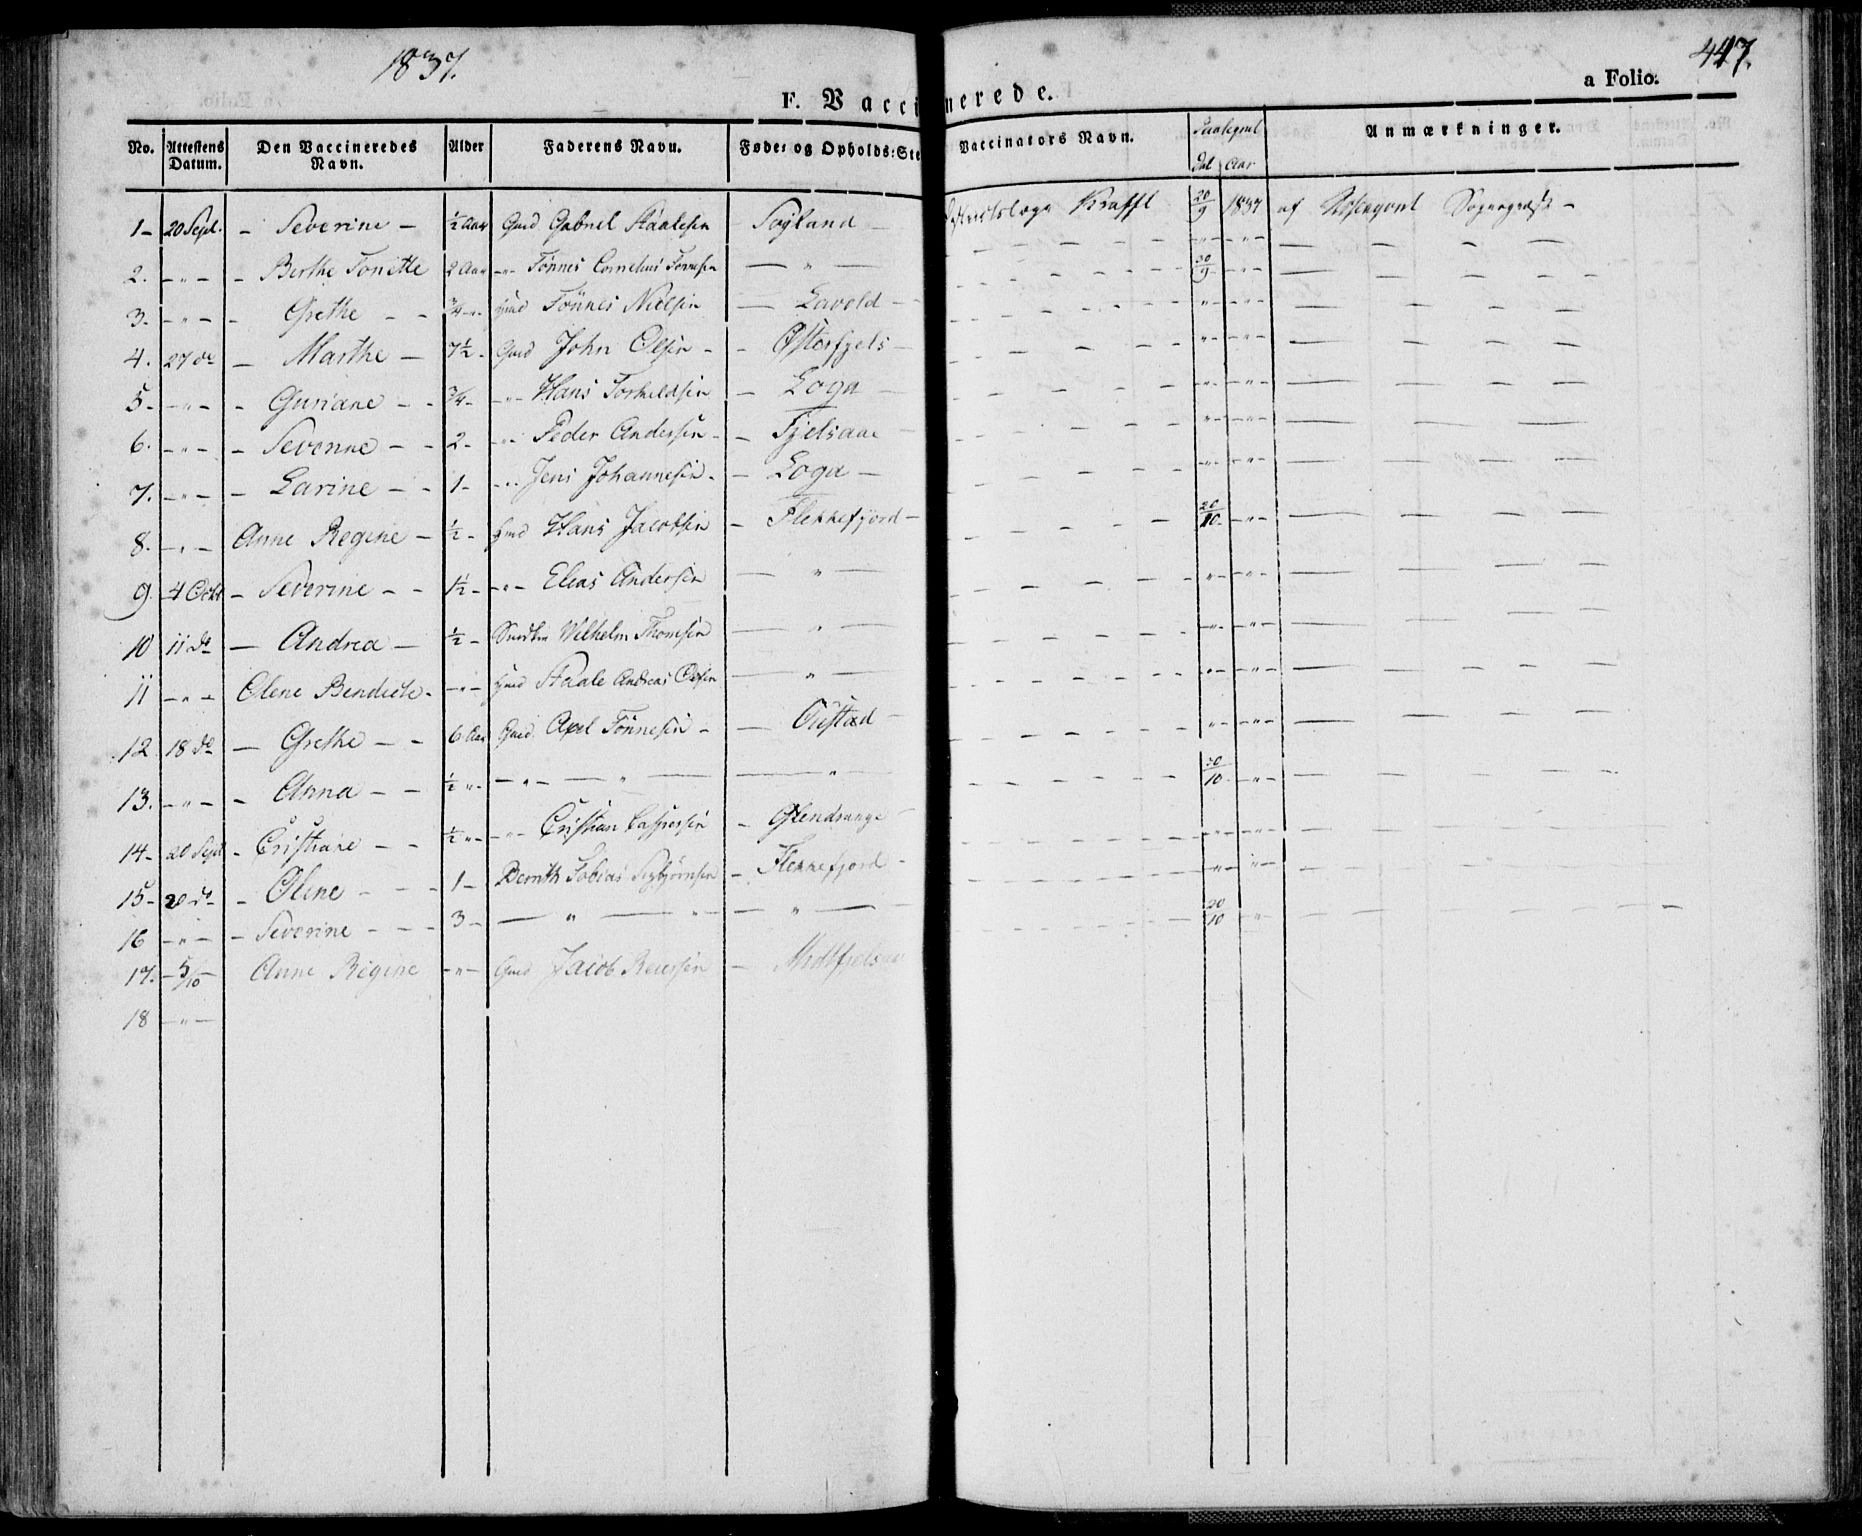 1837.
447.
F. Vaccinerede.
a Folio.
No. Attestens Datum. Den Vaccineredes Navn. Alder Faderens Navn. Føde- og Opholds-Ste Vaccinators Navn. Dat Aar Anmærkninger.
1- 20 Sept. - Severine - ½ Aar Gmd Gabriel Staalesen Søyland Krafft 20/9 1837 af Sogn
2. -"- - Berthe Tonette 2 Aar -"- Tönnes Cornelius Tönnesen - " - - - - -"- -"-
3. -"- - Grethe - - ¾ -"- Hmd Tönnes Nielsen - Lavold - 30/9 -"-
4. 27 do - Marthe - 7½ - Gmd John Olsen - - Østerfjels - -"- -"-
5- -"- - Guriane - - ¾- -"- Hans Torkeldsen - Loga - -"- -"-
6. -"- - Severine - - 2- -"- Peder Andersen - - Fjelsaae - -"- -"-
7. -"- - Larine - - 1- -"- Jens Johannesen - - Loga - -"- -"-
8. -"- Anne Regine - ½- Hmd Hans Jacobsen - Flekkefjord - 20/10 -"-
9. 4 Octr - Severine - - 1½- -"- Elias Andersen - " - -"- -"-
10 11 do - Andrea - ½- Wilhelm Thomsen - " - -"- -"-
11 -"- Olene Bendicte - -"- Hmd Staale Andreas Olsen - " - -"- -"-
12 18 do - Grethe - - 6 Aar Gmd. Axel Tönnesen - - Öustad - -"- -"-
13. -"- - Anna - - ½ -"- -"- - " - - " - 30/10 -"-
14- 20 Sept - Cristiane - - ½ -"- -"- Cristian Caspersen - -"- -"-
15- 20 do - Olene - - - 1- Bernth Tobias Sigbjørnsen - Flekkefjord - -"- -"-
16 -"- - Severine - - - 3- - " - - " - 20/10 -"-
17. 5/10 Anne Regine -"- Gmd Jacob Reiersen - Midtfjels
18 -"-